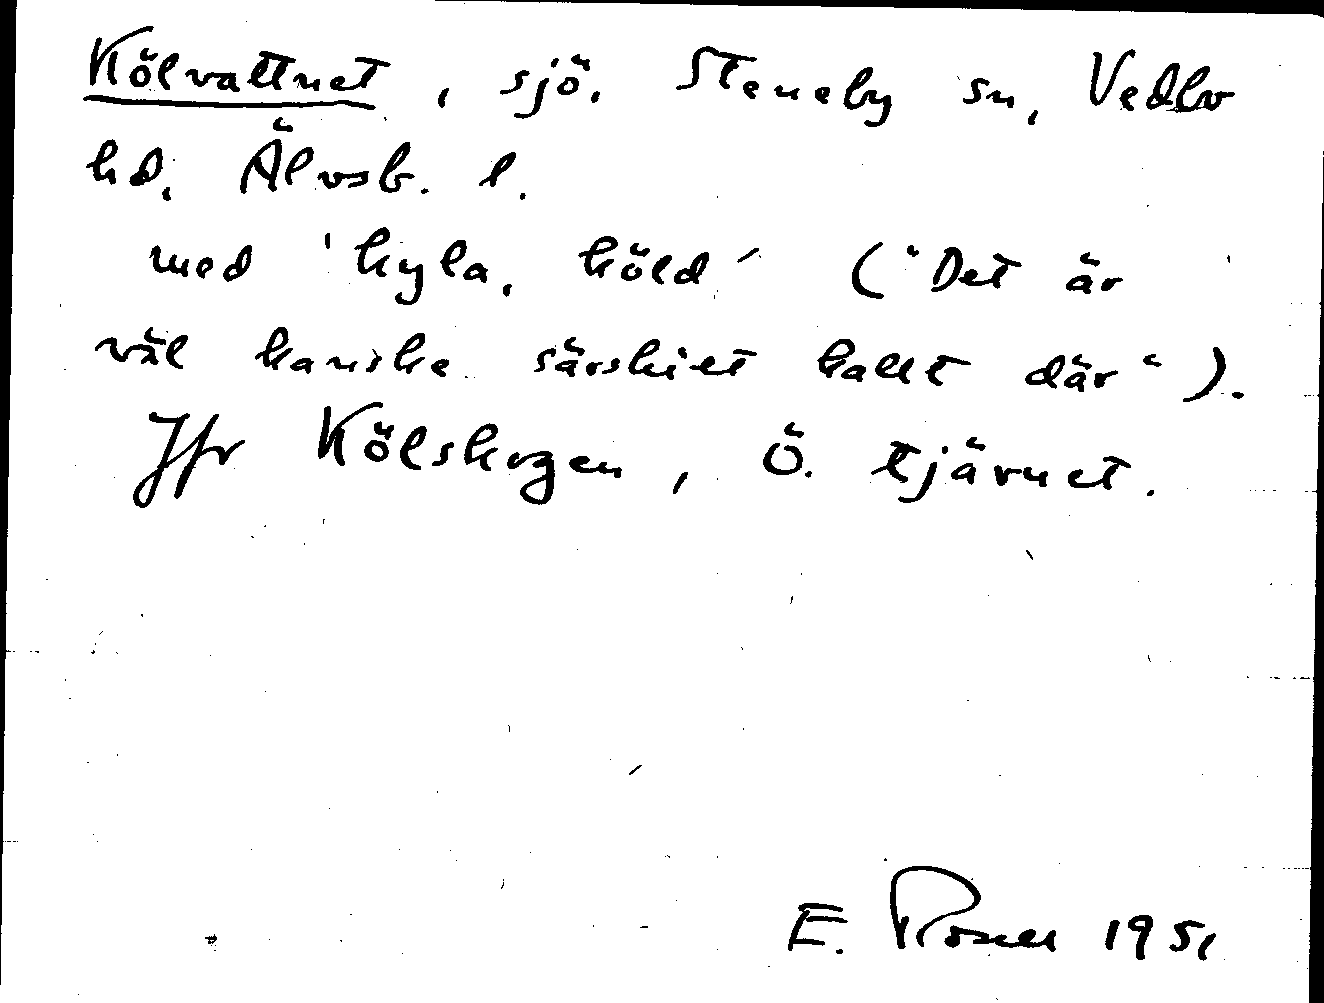 Kölvattnet, sjö. Steneby sn, Vedbo
hd, Älvsb. l.
med 'kyla, köld' ("Det är
väl kanske särskilt kallt där").
Jfr Kölskogen, Ö. tjärnet.
E. Rosell 1951